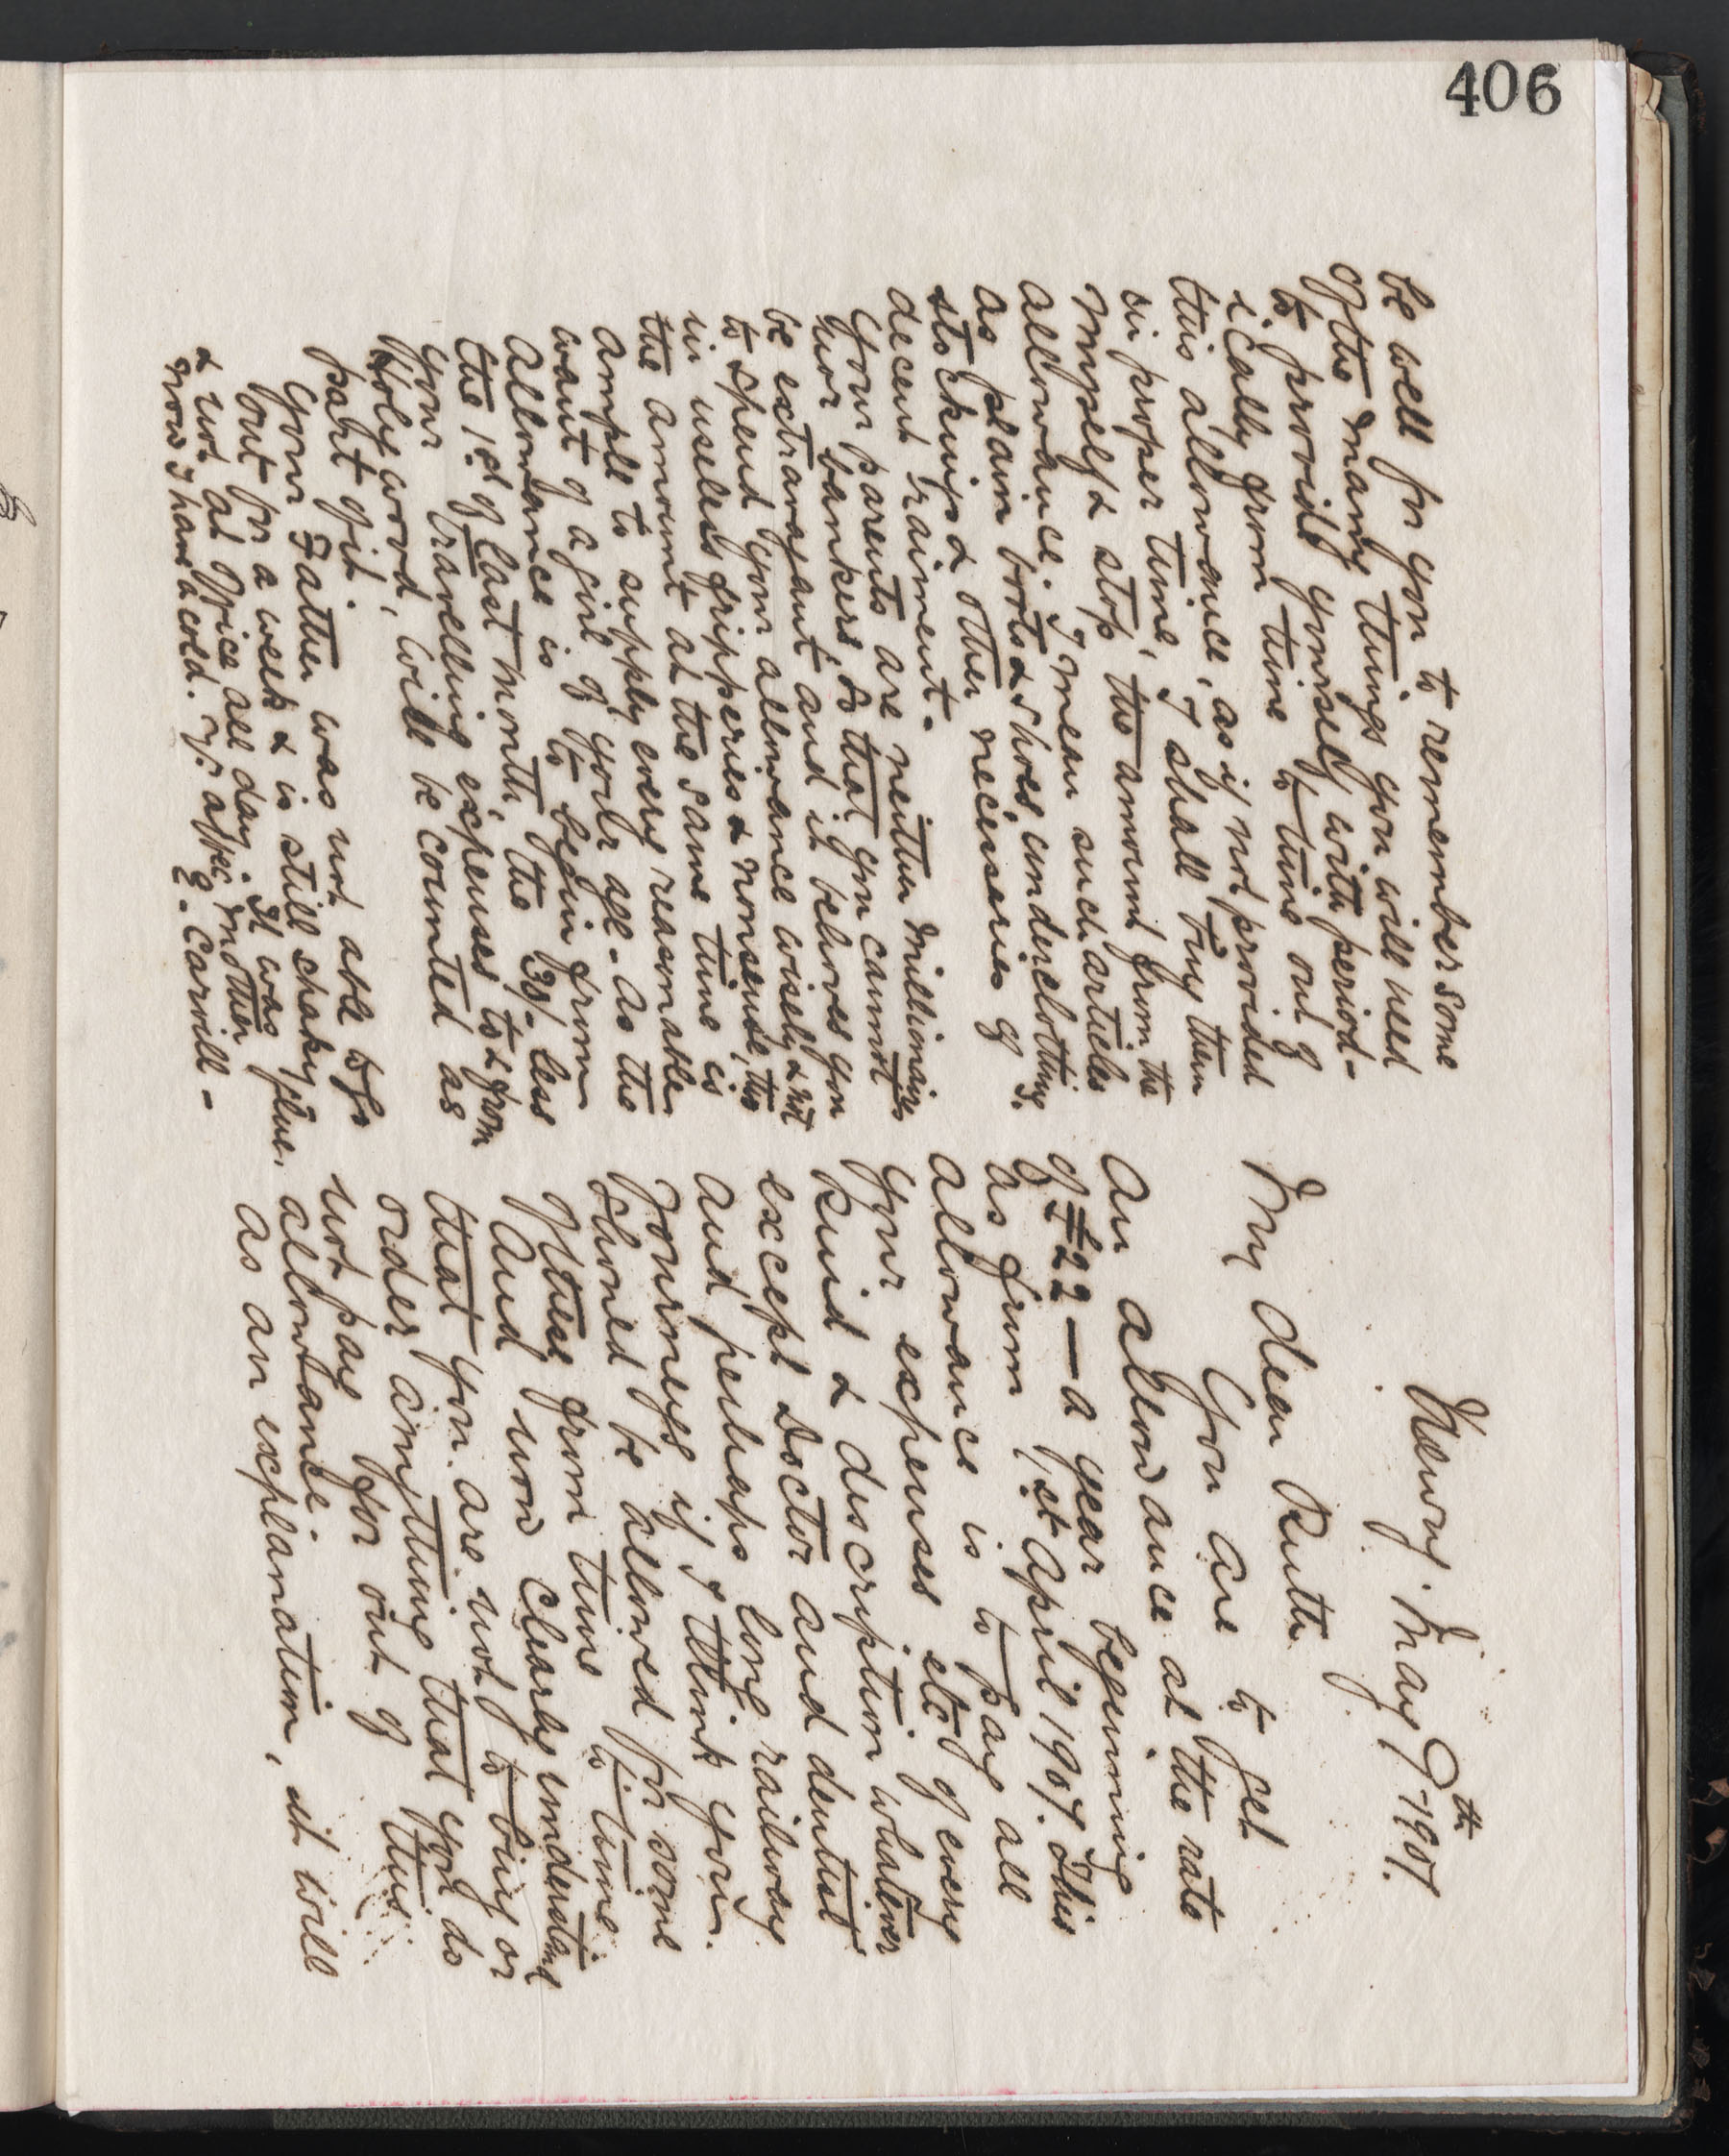 406
Newry. May 9th 1907.
My dear Ruth
You are to get
an allowance at the rate
of £22 — a year beginning
as from 1st April 1907. This
allowance is to pay all
your expenses etc of every
kind & description whatever
except doctor and dentist
and perhaps long railway
journeys if I think you
should be allowed for some
of these from time to time.
And now clearly understand
that you are not to buy or
order anything that you do
not pay for out of this
allowance.
As an explanation, it will
be well for you to remember some
of the many things you will need
to provide yourself with period-
ically from time to time out of
this allowance, as if not provided
in proper time, I shall buy them
myself & stop the amount from the
allowance. I mean such articles
as plain boots & shoes, underclothing,
stockings & other necessaries of
decent raiment.
Your parents are neither millionaires
nor bankers so that you cannot
be extravagant and it behoves you
to spend your allowance wisely & not
in useless fripperies & nonsense, tho
the amount at the same time is
ample to supply every reasonable
want of a girl of your age. As the
allowance is to begin from
the 1st of last month, the 30/- less
your travelling expenses to & from
Holywood, will be counted as
part of it.
Your Father was not able to go
out for a week & is still shaky
& not at office all day. It was flue.
now I have a cold. Yr. affec. Mother
E. Carvill -